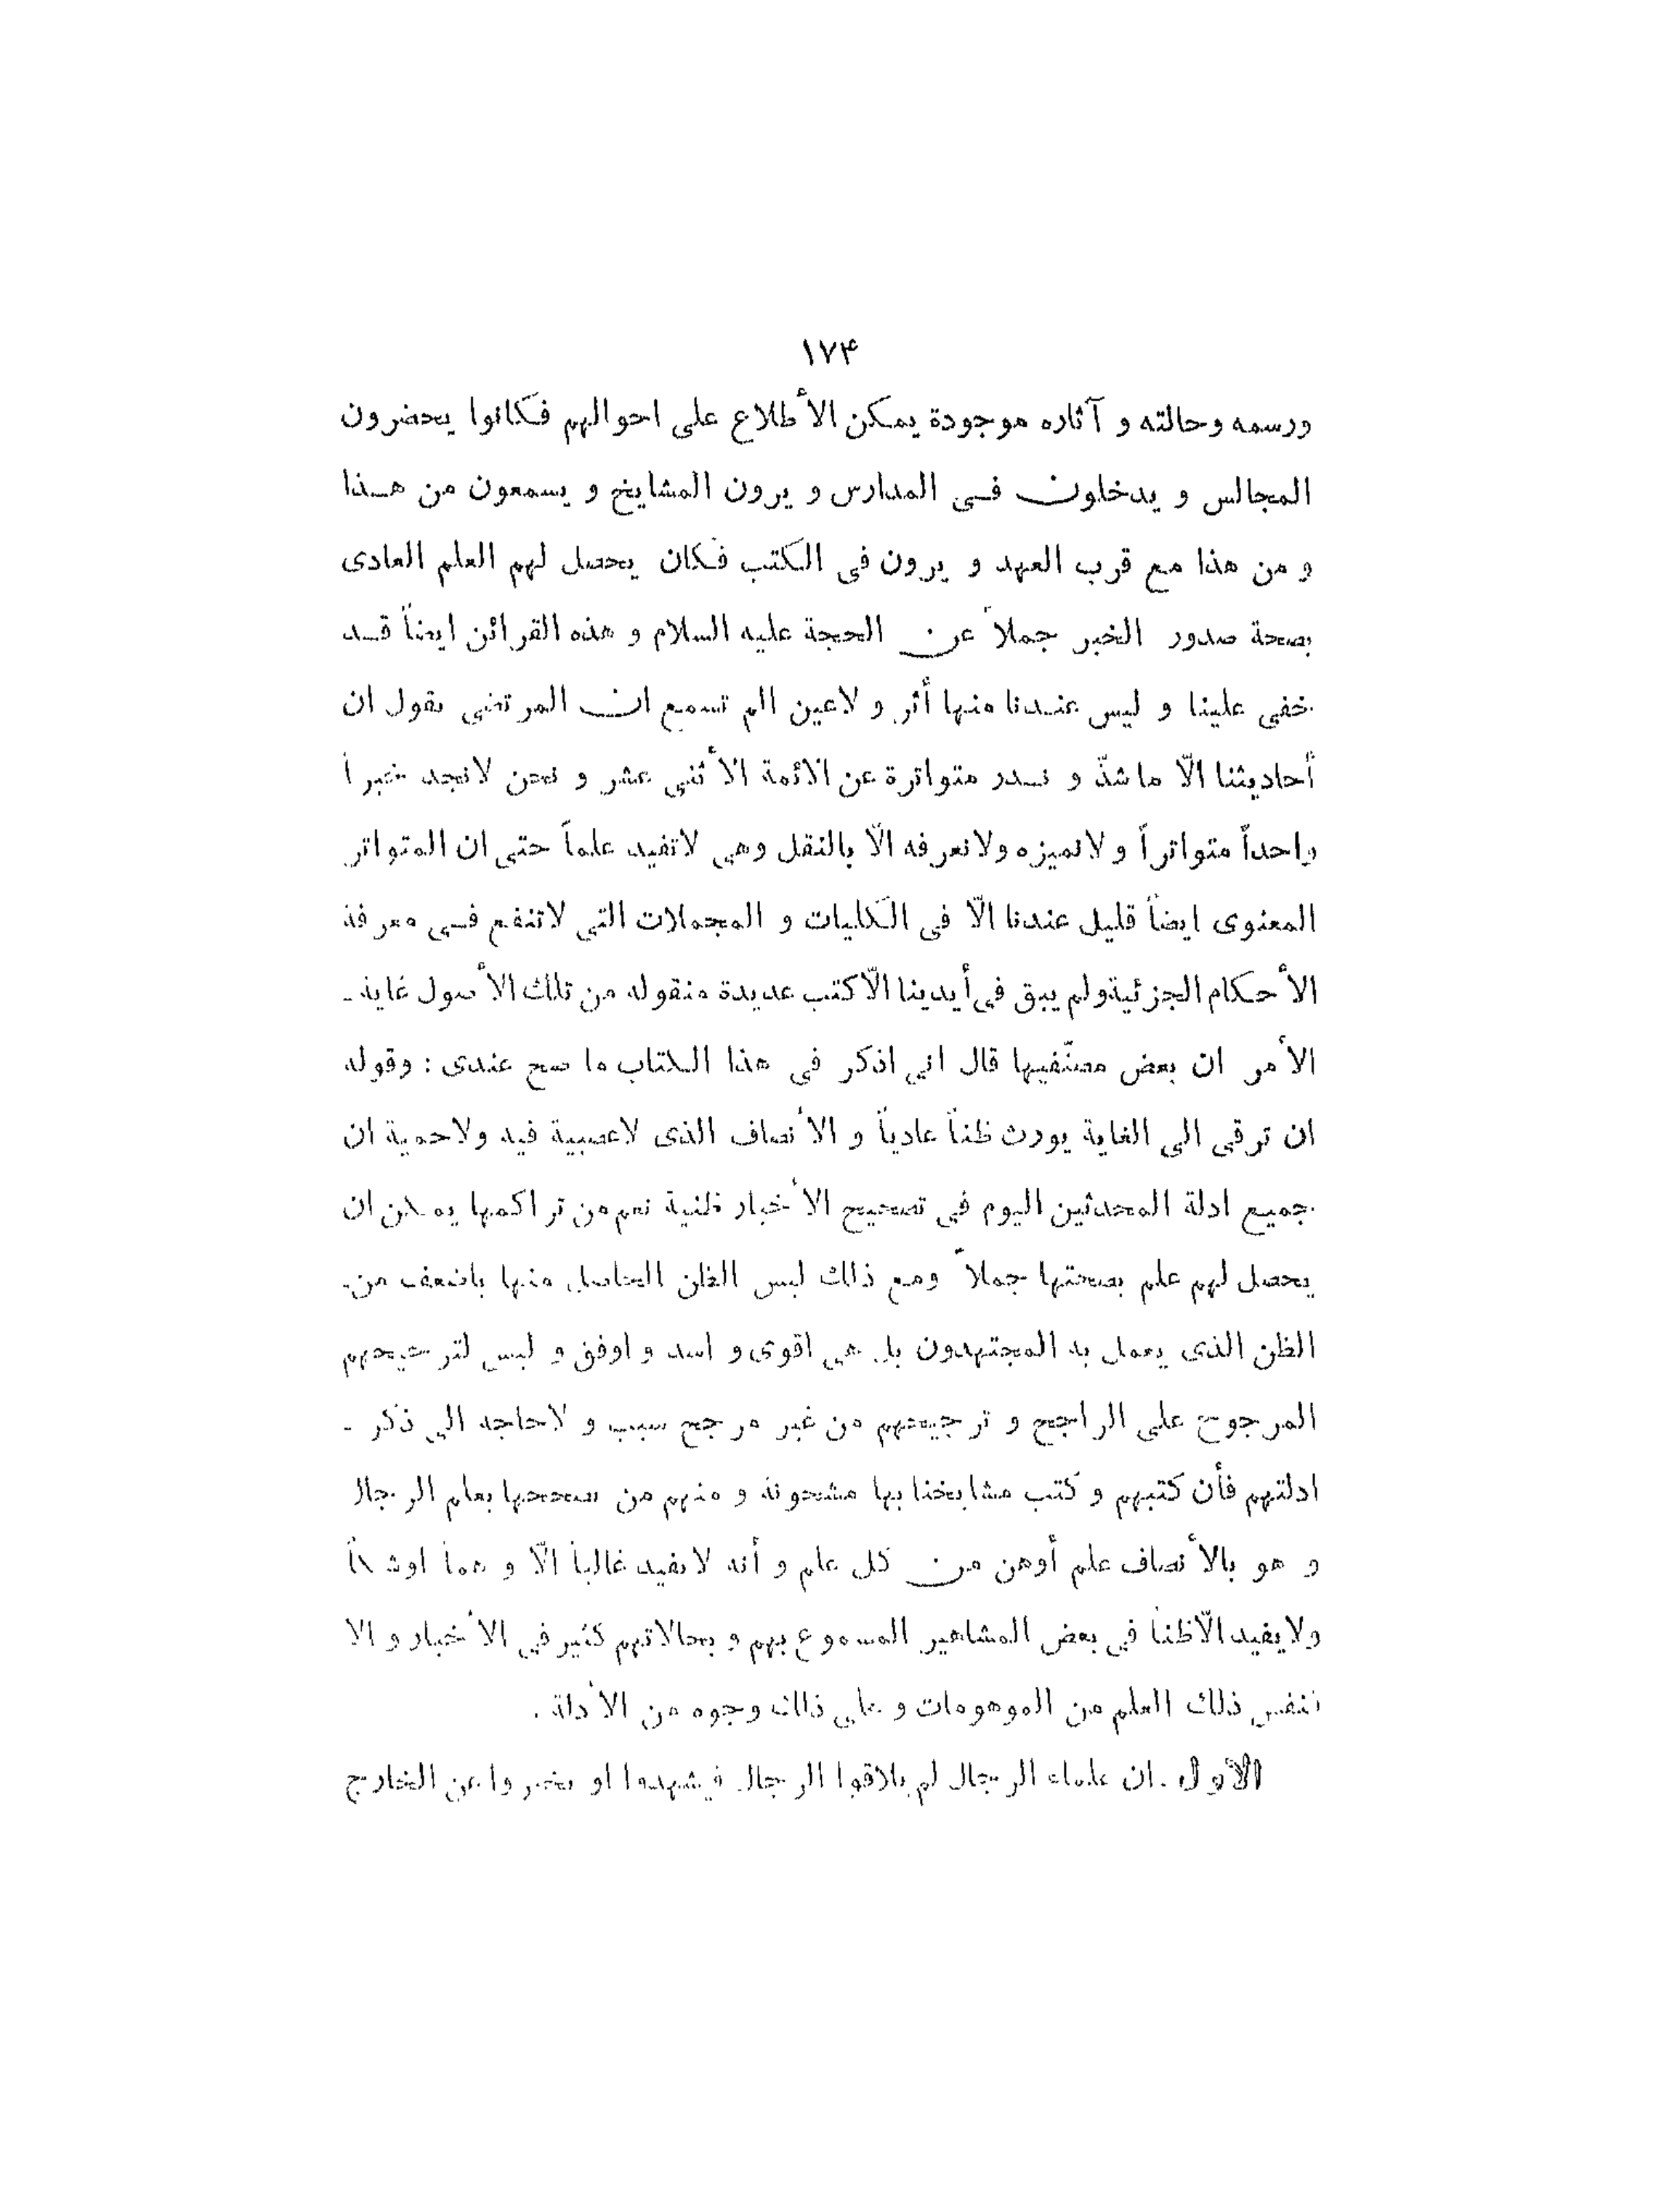 ۱۷۴
ورسمه وحالته و آثاره موجودة يمكن الأطلاع على احوالهم فكانوا يحضرون
المجالس و يدخلون فى المدارس و يرون المشايخ و يسمعون من هذا
و من هذا مع قرب العهد و يرون فى الكتب فكان يحصل لهم العلم العادى
بصحة صدور الخبر جملاً عن الحجة عليه السلام و هذه القرائن ايضاً قد
خفى علينا و ليس عندنا منها أثر و لاعين الم تسمع ان المرتضى يقول ان
أحاديثنا الّا ماشذّ و ندر متواترة عن الائمة الأثنى عشر و نحن لانجد خبراً
واحداً متواتراً و لانميزه ولانعرفه الّا بالنقل وهى لاتفيد علماً حتى ان المتواتر
المعنوى ايضاً قليل عندنا الّا فى الكليات و المجملات التى لاتنفع فى معرفة
الأحكام الجزئية ولم يبق فى أيدينا الّا كتب عديدة منقوله من تلك الأصول غاية ـ
الأمر ان بعض مصنّفيها قال انى اذكر فى هذا الكتاب ما صح عندى : وقوله
ان ترقى الى الغاية يورث ظناً عادياً و الأنصاف الذى لاعصبية فيه ولاحمية ان
جميع ادلة المحدثين اليوم فى تصحيح الأخبار ظنية نعم من تراكمها يمكن ان
يحصل لهم علم بصحتها جملاً ومع ذلك ليس الظن الحاصل منها باضعف من
الظن الذى يعمل به المجتهدون بل هى اقوى و اسد و اوفق و ليس لترجيحهم
المرجوح على الراجح و ترجيحهم من غير مرجح سبب و لاحاجه الى ذكر ـ
ادلتهم فأن كتبهم و كتب مشايخنا بها مشحونة و منهم من صححها بعلم الرجال
و هو بالأنصاف علم أوهن من كل علم و أنه لايفيد غالباً الّا و هماً اوشكاً
ولايفيد الّاظناً فى بعض المشاهير المسموع بهم و بحالاتهم كثير فى الأخبار و الا
فنفس ذلك العلم من الموهومات و على ذلك وجوه من الأدلة .
الأول . ان علماء الرجال لم يلاقوا الرجال فيشهدوا او يخبروا عن الخارج